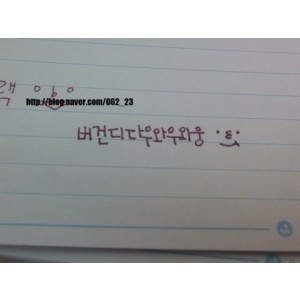 랙 ㅇ6ㅇ
http://blog.naver.com/062_23
버건디다우와우와웅 •ε•